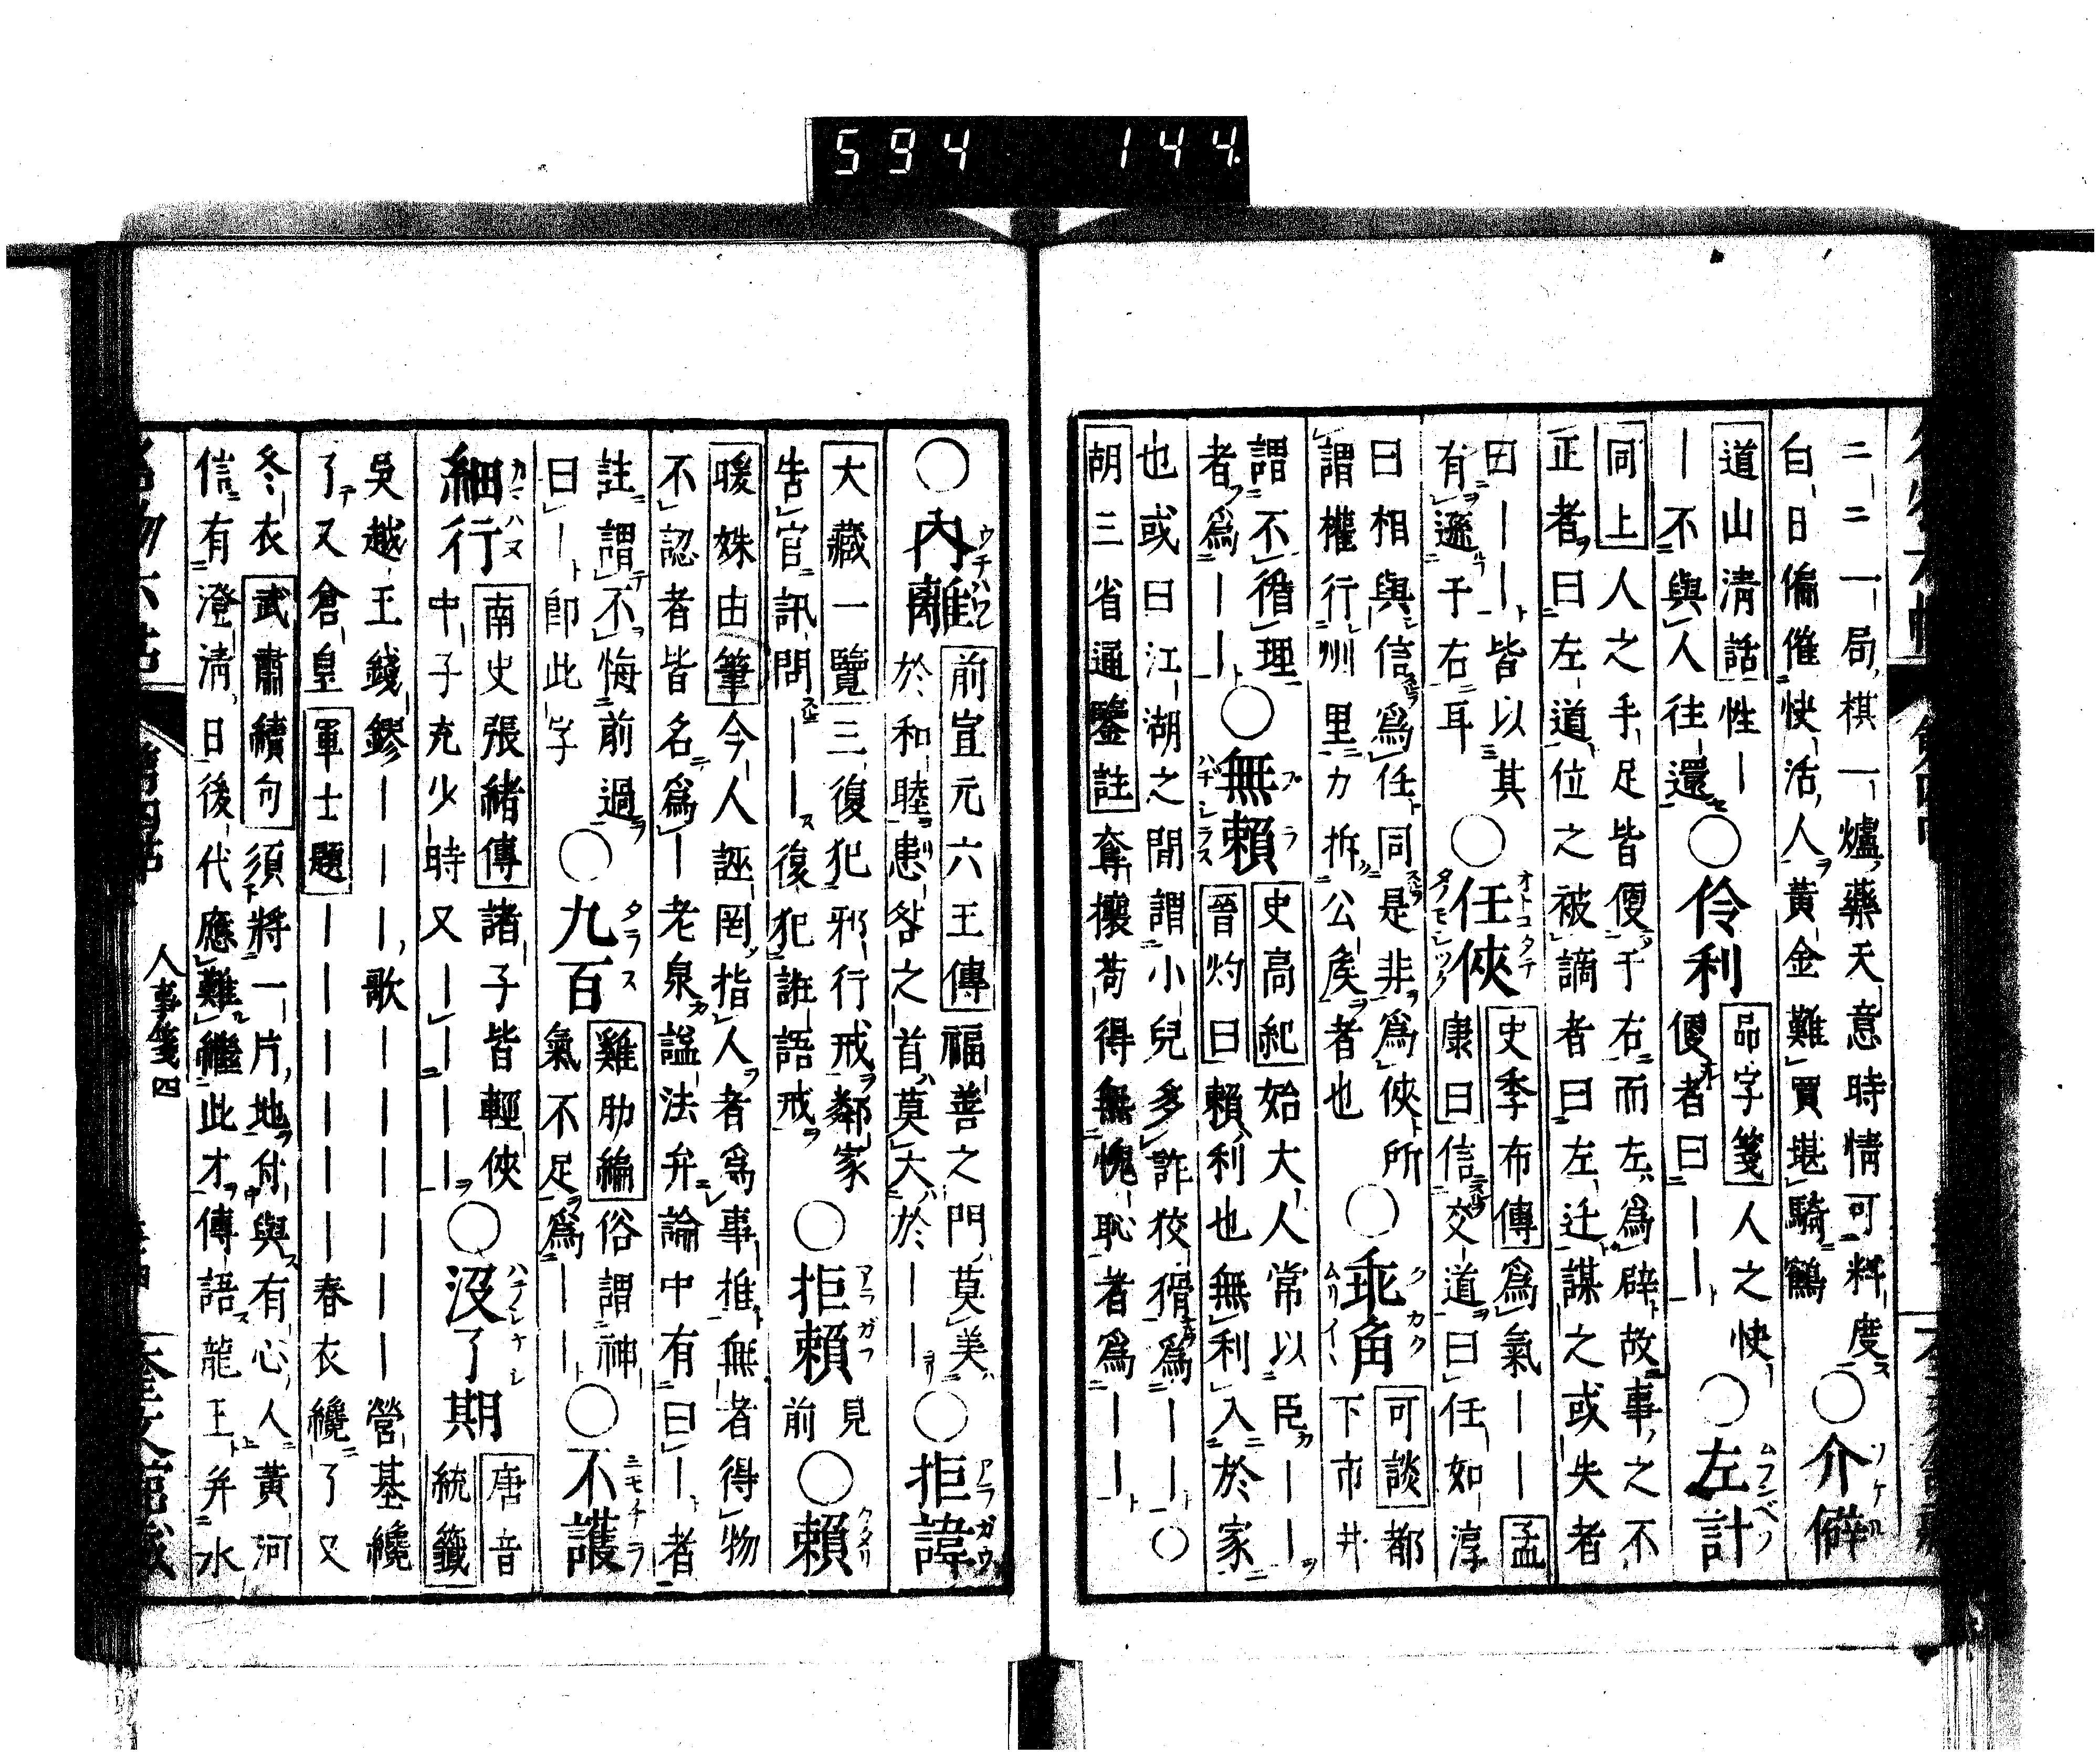 594 144
二二一局棋一爐藥天意時情可料度
白日偏催快活人黃金難買堪騎鶴
○介僻
道山淸話性一
一不與人往還
○伶利
品字箋人之快
便者曰一一
○左計
同上人之手足皆便于右而左爲僻故事之不
正者曰左道位之被謫者曰左迁謀之或失者
曰一一皆以其
有遜于右耳
○任俠
オトコタテ
史季布傳爲氣一一孟
康曰信交道曰任如淳
曰相與信爲任同是非爲俠所
謂權行州里力折公矦者也
○乖角
クカク
可談都
下市井
謂不循理
者爲一一
○無賴
ブライ
史高紀始大人常以臣一一
晉灼曰賴利也無利入於家
也或曰江湖之閒謂小兒多詐狡猾爲一一○
胡三省通鑒註奪攘苟得無愧恥者爲一一
○內離
前宣元六王傳福善之門莫美
於和睦患咎之首莫大於一一
○拒諱
アラガウ
大藏一覽三復犯邪行戒鄰家
吿官訊問一一復犯誑語戒
○拒賴
アラガフ
見
前
○賴
暖姝由筆今人誣罔指人者爲事推無者得物
不認者皆名爲一老泉謚法弁論中有曰一者
註謂不悔前過
曰一卽此字
○九百
タラス
雞肋編俗謂神
氣不足爲一一
○不護
細行
南史張緖傳諸子皆輕俠
中子充少時又一一一一
○沒了期
ハテシナシ
唐音
統籤
吳越王錢鏐一一一一歌一一一一一一營基纔
了又倉皇軍士題一一一一一一春衣纔了又
冬衣武肅續句須將一片地付與有心人黃河
信有澄淸日後代應難繼此才傳語龍王弁水
人事箋四